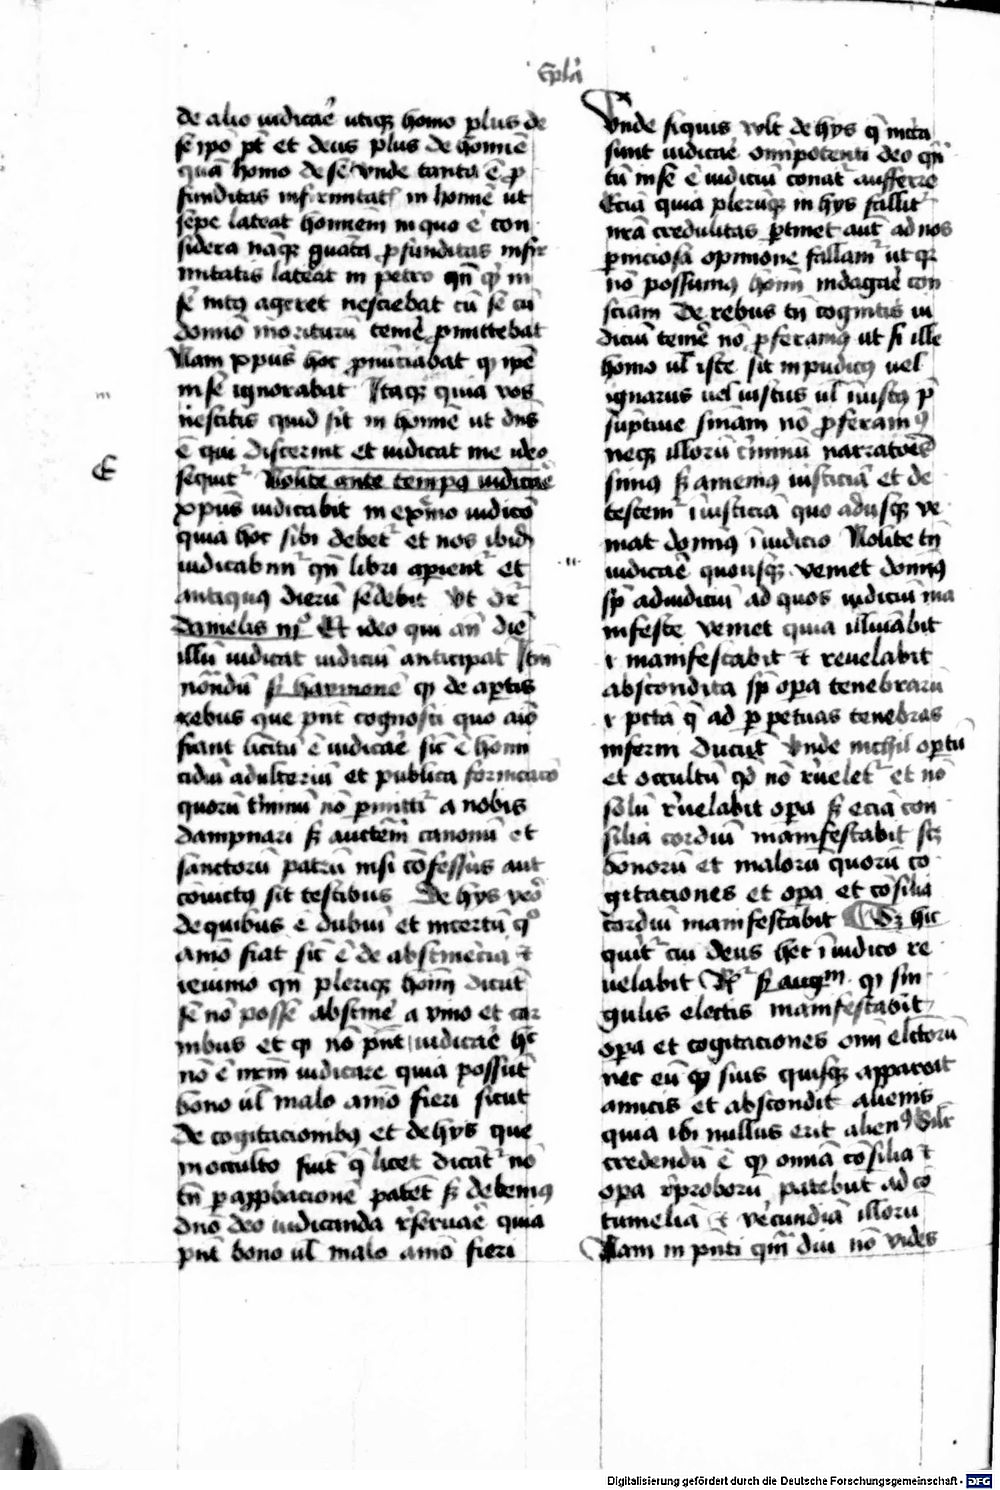 Epla
de alio iudicare utiqꝫ homo plus de
se ipo pt et deus plus de homīe
quā homo de se Vnde tanta ē p
funditas infirmitatꝭ in homīe ut
sepe lateat hominem in quo ē con
sidera nāqꝫ quāta profunditas infir
mitatis lateat in petro qn̄ qꝫ in
se intꝰ ageret nesciebat cū se cū
domīo moriturū temē pmittebat
Nam xp̄us hoc p̄nūciabat qꝫ ip̄e
in se ignorabat Itaqꝫ quia vos
nescitis quid sit in homīe ut dn̄s
ē qui discernit et iudicat me ideo
sequitᷣ Nolite ante tempꝰ iudicare
xp̄us iudicabit in exᷓmo iudicō
quia hoc sibi debetᷣ et nos ibidē
iudicabimᷣ qn̄ libri apientᷣ et
antiquꝰ dierū sedebit Vt drᷣ
Danielis viiº Et ideo qui an̄ diē
illū iudicat iudiciū anticipat Itm̄
nōndū sꝫ haymonē qꝫ de aptis
rebus que pn̄t cognosci quo aīo
fiant licitū ē iudicare sic ē homi
cidiū adulteriū et publica fornicacō
quorū crimīnū nō pmittᷣ a nobis
dampnari sꝫ auctem canonū et
sanctorū patrū nisi cōfessus aut
cōuictꝰ sit testibus De hys veō
de quibus ē dubiū et incertū qº
aīmo fiat sic ē de abstinēcia et
ieiunio qn̄ pleriqꝫ homī dicūt
se nō posse abstine a vino et car
nibus et qꝫ nō pn̄t iudicare hec
nō ē nr̄m iudicare quia possūt
bono ul malo aīmo fieri sicut
de cogitacionibꝰ et de hys que
in occulto fiūt q̄ licet dicātᷣ nō
tn̄ papp̄bacionē patet sꝫ debemꝰ
dn̄o deo iudicanda r̄seruare quia
pn̄t bono ul malo aīmo fieri
Vnde siquis vult de hys q̄ incta
sunt iudicare omīpotenti deo qn̄
tū in se ē iudiciū conatᷣ aufferre
Ecia quia pleruqꝫ in hys fallitᷣ
nr̄a credulitas ptinet aut ad nos
pniciosa opinione fallamᷣ ut qꝛ
nō possumꝰ homī indagare con
sciam De rebus tn̄ cognitis iu
diciū temē nō pferamꝰ ut si ille
homo ul iste sit inpudicꝰ uel
ignarus uel iustus ul iniustꝰ p̄
sūptiue sn̄iam nō pferamꝰ
neqꝫ illorū crimīnū narratores
simꝰ sꝫ amemꝰ iusticiā et de
testemᷣ iniusticiā quo adusqꝫ ve
niat domīnꝰ ī iudicio Nolite tn̄
iudicare quousqꝫ veniet domīnꝰ
sꝫ ad iudiciū ad quos iudiciū ma
nifeste veniet quia illuiabit
i manifestabit et reuelabit
abscondita sꝫ opa tenebrarū
i pctā q̄ ad p petuas tenebras
inferni ducūt Vnde nichil optū
et occultū qd nō r̄ueletᷣ et nō
solū r̄uelabit opa sꝫ ecia con
silia cordiū manifestabit scꝫ
bonorū et malorū quorū co
gitaciones et opa et cōsilia
cordiū manifestabit Sꝫ hic
quitᷣ cui deus hec ī iudicō re
uelabit Rᷣ sꝫ augᵐ qꝫ sin
gulis electis manifestabit
opa et cogitaciones omī electorū
nec eū qꝫ suis quisqꝫ appareat
amicis et abscondit alienis
quia ibi nullus erit alienꝰ Silr
credendū ē qꝫ omnia cōsilia et
opa r̄proborū patebūt ad cō
tumeliā et vecundiā illorū
Nam in pn̄ti qm̄ diu nō vides
Digitalisierung gefördert durch die Deutsche Forschungsgemeinschaft - DFG